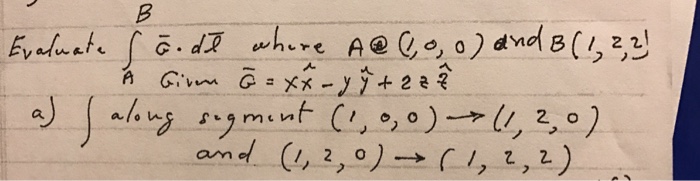 B
Evaluate ∫ Ḡ · dl̄ where A @ (1,0,0) and B(1,2,2)
A Given Ḡ = xx̂ - yŷ + 2zẑ
a) ∫ along segment (1,0,0) → (1,2,0)
and (1,2,0) → (1,2,2)